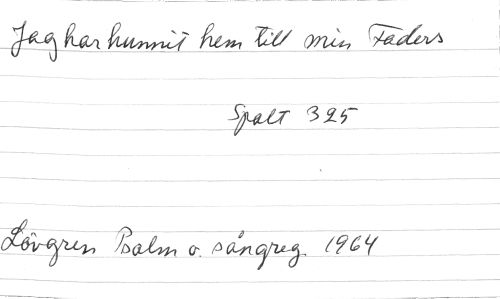 Jag har hunnit hem till min Faders
Spalt 325
Lövgren Psalm o. sångreg. 1964